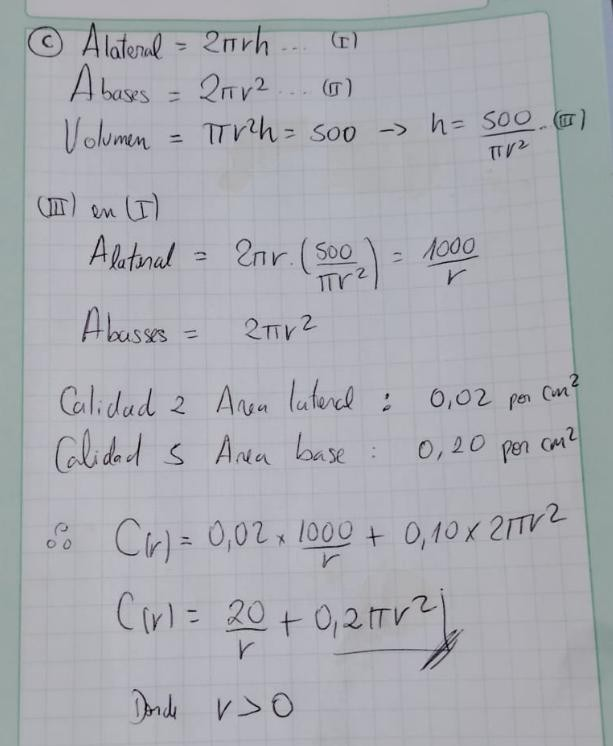 (c) Alateral = 2πrh ... (I)
Abases = 2πr² ... (II)
Volumen = πr²h = 500 → h = 500/πr² .. (III)
(III) en (I)
Alateral = 2πr.(500/πr²) = 1000/r
Abasses = 2πr²
Calidad 2 Area lateral : 0,02 per cm²
Calidad 5 Area base : 0,20 per cm²
∴ C(r) = 0,02 × 1000/r + 0,10 × 2πr²
C(r) = 20/r + 0,2πr²
Donde r > 0